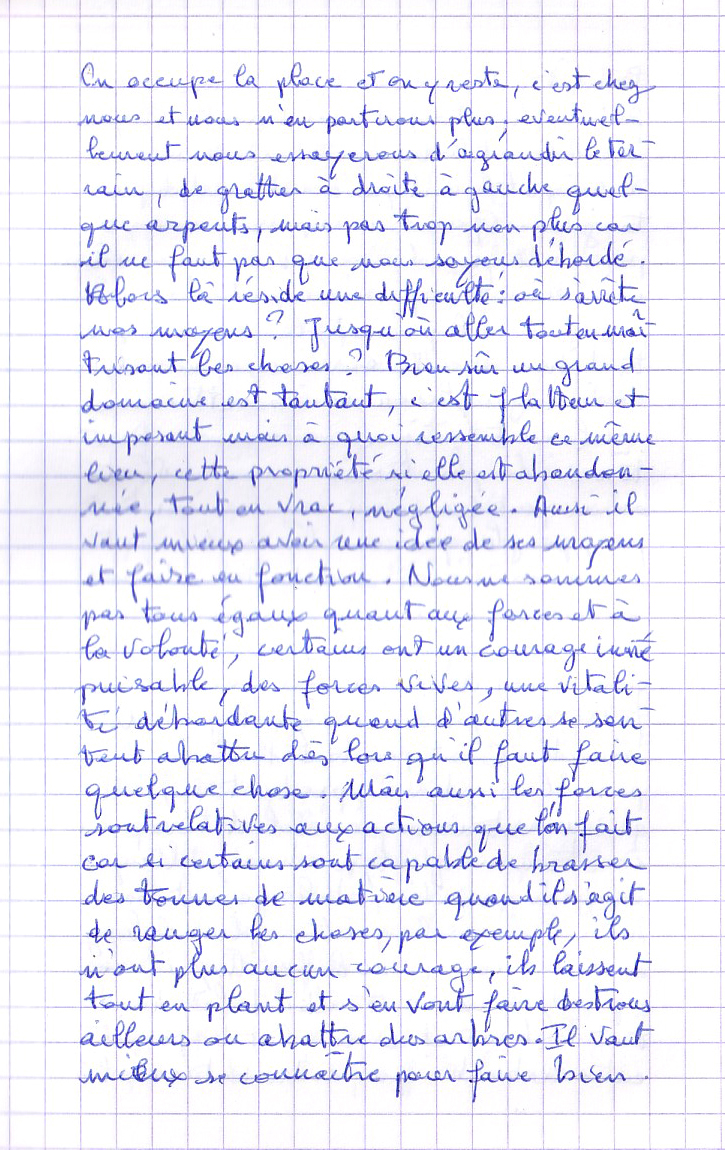 On occupe la place et on y reste, c'est chez
nous et nous n'en partirons plus, eventuel-
lement nous essayerons d'agrandir le ter-
rain, de gratter à droite à gauche quel-
que arpents, mais pas trop non plus car
il ne faut pas que nous soyons débordé.
Alors là réside une difficulté : où s'arrête
nos moyens ? Jusqu'où aller tout en maî-
trisant les choses ? Bien sûr un grand
domaine est tentant, c'est flatteur et
imposant mais à quoi ressemble ce même
lieu, cette propriété si elle est abandon-
née, tout en vrac, négligée. Aussi il
vaut mieux avoir une idée de ses moyens
et faire en fonction. Nous ne sommes
pas tous égaux quant aux forces et à
la volonté, certains ont un courage iné
puisable, des forces vives, une vitali-
té débordante quand d'autres se sen-
tent abattu dès lors qu'il faut faire
quelque chose. Mais aussi les forces
sont relatives aux actions que l'on fait
car si certains sont capable de brasser
des tonnes de matière quand il s'agit
de ranger les choses, par exemple, ils
n'ont plus aucun courage, ils laissent
tout en plant et s'en vont faire des trous
ailleurs ou abattre des arbres. Il vaut
mieux se connaître pour faire bien.